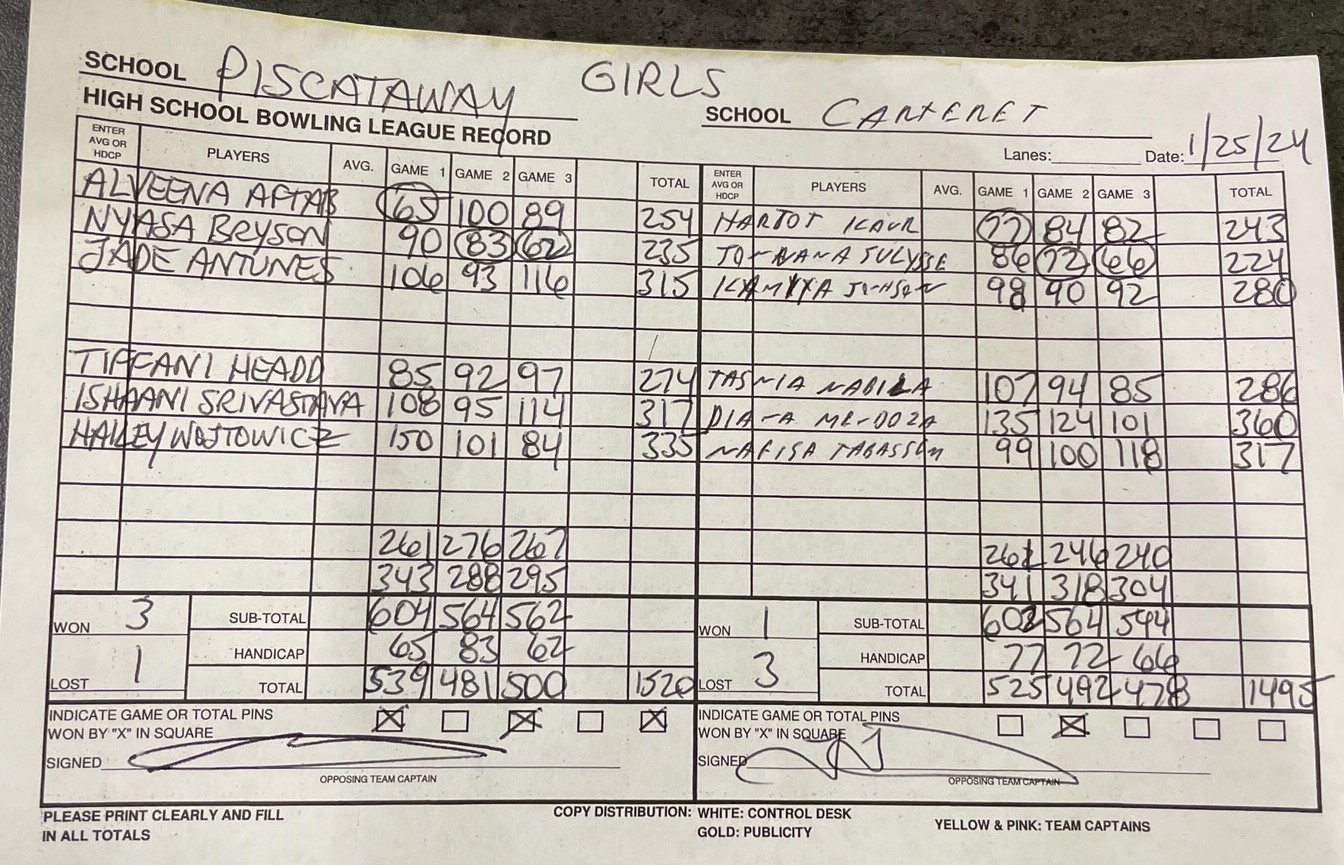 SCHOOL PISCATAWAY GIRLS SCHOOL CARTERET
HIGH SCHOOL BOWLING LEAGUE RECORD
Lanes: Date: 1/25/24
ENTER AVG OR HDCP PLAYERS AVG. GAME 1 GAME 2 GAME 3 TOTAL ENTER AVG OR HDCP PLAYERS AVG. GAME 1 GAME 2 GAME 3 TOTAL
ALVEENA AFTAB 65 100 89 254 HARJOT KAUR 77 84 82 243
NYASA BRYSON 90 83 62 235 SULYSSE 86 72 66 224
JADE ANTUNES 106 93 116 315 JOHNSON 98 90 92 280
TIFFANI HEADD 85 92 97 274 TASNIA NABILA 107 94 85 286
ISHAANI SRIVASTAVA 108 95 114 317 DIANA MENDOZA 135 124 101 360
HAILEY WOJTOWICZ 150 101 84 335 NAFISA TABASSUM 99 100 118 317
261 276 267 261 246 240
343 288 295 341 318 304
WON 3 SUB-TOTAL 604 564 562 WON 1 SUB-TOTAL 602 564 544
HANDICAP 65 83 62 HANDICAP 77 72 66
LOST 1 TOTAL 539 481 500 1520 LOST 3 TOTAL 525 492 478 1495
INDICATE GAME OR TOTAL PINS X X X INDICATE GAME OR TOTAL PINS X
WON BY "X" IN SQUARE WON BY "X" IN SQUARE
SIGNED SIGNED
OPPOSING TEAM CAPTAIN OPPOSING TEAM CAPTAIN
PLEASE PRINT CLEARLY AND FILL COPY DISTRIBUTION: WHITE: CONTROL DESK YELLOW & PINK: TEAM CAPTAINS
IN ALL TOTALS GOLD: PUBLICITY